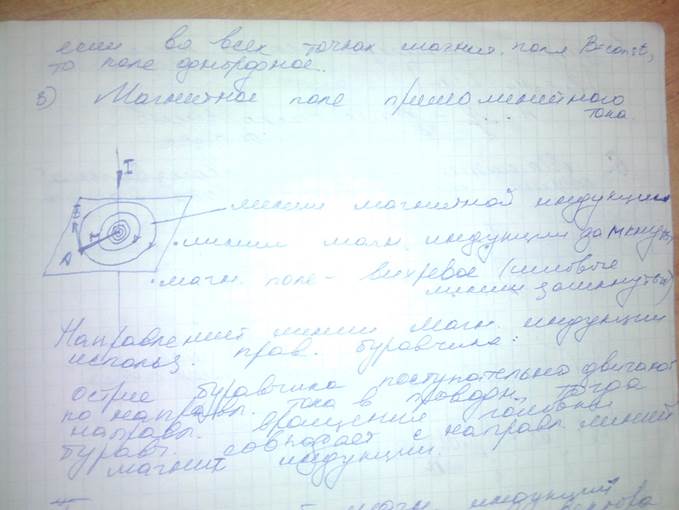 если во всех точках магнит. поля B=const,
то поле однородное.
3) Магнитное поле прямолинейного
тока.
I
линии магнитной индукции
B
• линии магн. индукции замкнуты
A
• магн. поле - вихревое (силовые
линии замкнуты)
Направление линии магн. индукции
использ. прав. буравчика:
острие буравчика поступательно двигают
по направл. тока в проводн. тогда
направл. вращения головки
буравч. совпадает с направл линий
магнит индукции.
магн. индукции